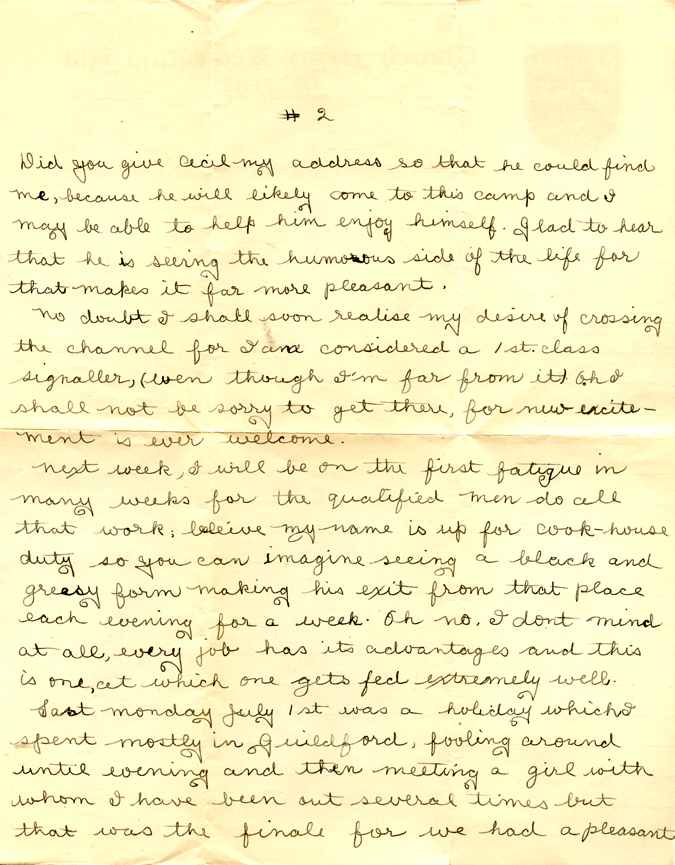 # 2
Did you give Cecil my address so that he could find
me, because he will likely come to this camp and I
may be able to help him enjoy himself. Glad to hear
that he is seeing the humorous side of the life for
that makes it far more pleasant.
No doubt I shall soon realise my desire of crossing
the channel for I am considered a 1st. class
signaller, (even though I'm far from it) Oh I
shall not be sorry to get there, for new excite-
ment is ever welcome.
Next week, I will be on the first fatigue in
many weeks for the qualified men do all
that work; beleive my name is up for cook-house
duty so you can imagine seeing a black and
greasy form making his exit from that place
each evening for a week. Oh no, I dont mind
at all, every job has its advantages and this
is one, at which one gets fed extremely well.
Last monday July 1st was a holiday which I
spent mostly in Guildford, fooling around
until evening and then meeting a girl with
whom I have been out several times but
that was the finale for we had a pleasant